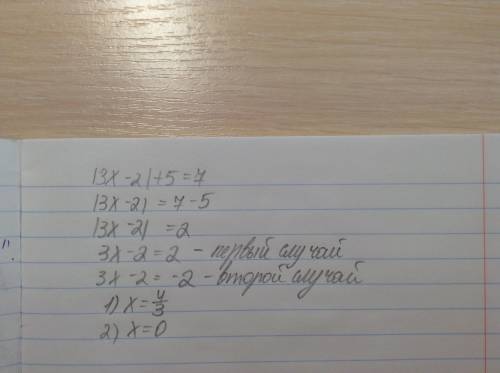 |3x-2|+5=7
|3x-2|=7-5
|3x-2|=2
3x-2=2 - первый случай
3x-2=-2 - второй случай
1) x=4/3
2) x=0